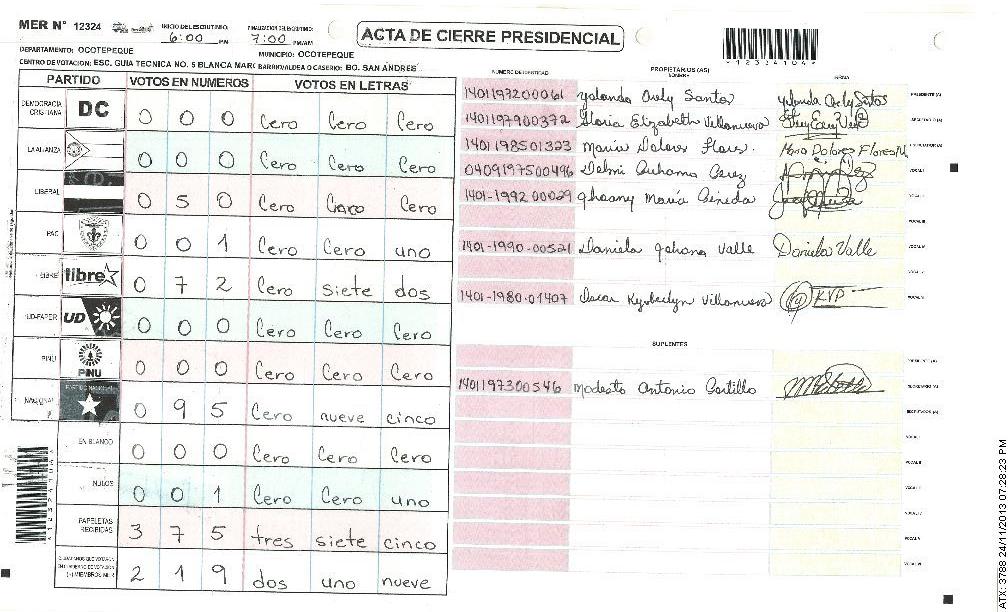 MER N° 12324
INICIO DEL ESCRUTINIO: 6:00 PM
FINALIZACION DEL ESCRUTINIO: 7:00 PM/AM
ACTA DE CIERRE PRESIDENCIAL
DEPARTAMENTO: OCOTEPEQUE
MUNICIPIO: OCOTEPEQUE
CENTRO DE VOTACION: ESC. GUIA TECNICA NO. 5 BLANCA MAR BARRIO/ALDEA O CASERIO: BO. SAN ANDRES
PARTIDO VOTOS EN NUMEROS VOTOS EN LETRAS
DEMOCRACIA CRISTIANA DC 0 0 0 Cero Cero Cero
LA ALIANZA 0 0 0 Cero Cero Cero
LIBERAL 0 5 0 Cero Cero
PAC 0 0 1 Cero Cero uno
LIBRE libre 0 7 2 Cero siete dos
UD-FAPER UD 0 0 0 Cero Cero Cero
PINU PINU 0 0 0 Cero Cero Cero
NACIONAL PARTIDO NACIONAL 0 9 5 Cero nueve cinco
EN BLANCO 0 0 0 Cero Cero Cero
NULOS 0 0 1 Cero Cero uno
PAPELETAS RECIBIDAS 3 7 5 tres siete cinco
2 1 9 dos uno nueve
(+) MIEMBROS MER
NUMERO DE IDENTIDAD PROPIETARIOS (AS) NOMBRE FIRMA
1401197200061 Yolanda Orely Santos Yolanda Orely Santos PRESIDENTE (A)
1401197900372 Gloria Elizabeth Villanueva SECRETARIO (A)
1401198501323 Maria Dolores Flores. Maria Dolores Flores M. ESCRUTADOR (A)
0409197500496 Delmi VOCAL I
1401-1992 00029 Maria Pineda VOCAL II
VOCAL III
1401-1990-00521 Daniela Yohana Valle Daniela Valle VOCAL IV
VOCAL V
1401-1980-01407 Oscar Kymberlyn Villanueva KVP VOCAL VI
SUPLENTES
PRESIDENTE (A)
1401197300546 Modesto Antonio Portillo SECRETARIO (A)
ESCRUTADOR (A)
VOCAL I
VOCAL II
VOCAL III
VOCAL IV
VOCAL V
VOCAL VI
ATX: 3788 24/11/2013 07:28:23 PM